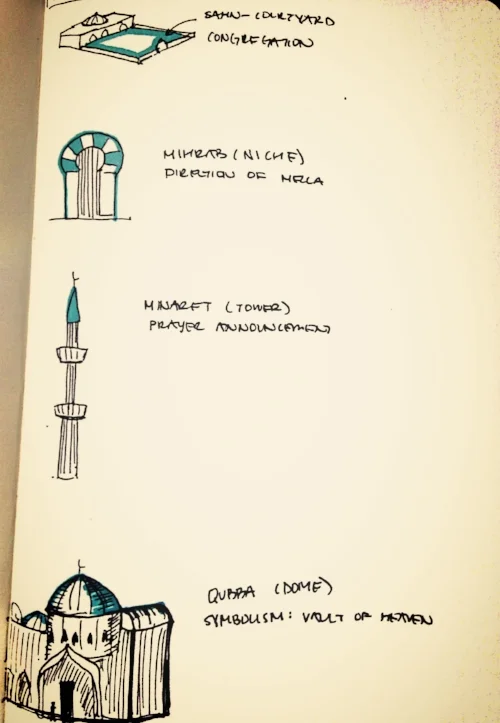 SAHN- COURTYARD
CONGREGATION
MIHRAB (NICHE)
DIRECTION OF MECCA
MINARET (TOWER)
PRAYER ANNOUNCEMENT
QUBBA (DOME)
SYMBOLISM: VAULT OF HEAVEN